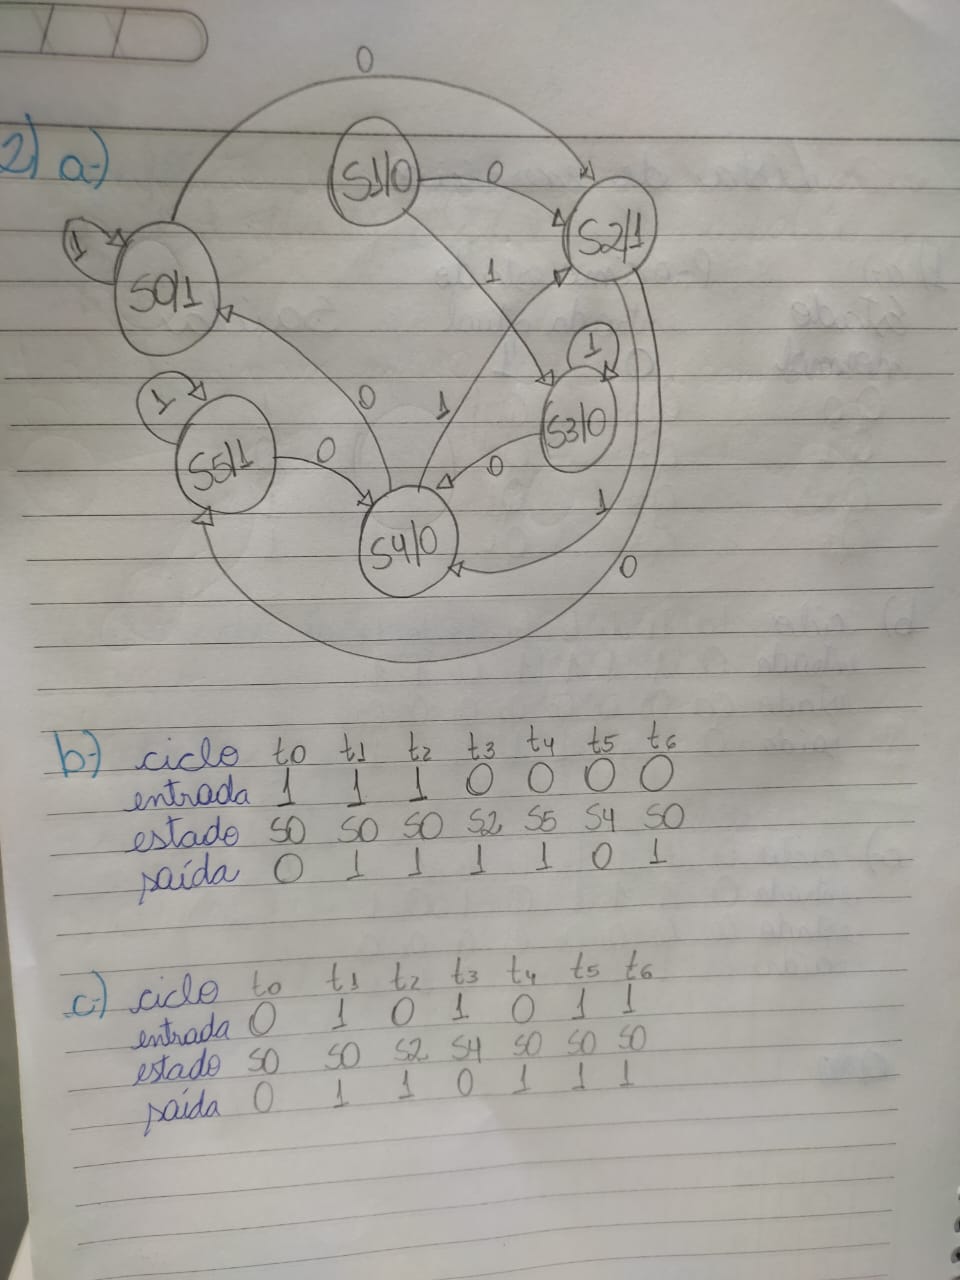 2) a-)
0
S1/0
0
S2/1
1
S0/1
1
1
0
1
S3/0
1
S5/1
0
0
1
S4/0
0
b-) ciclo t0 t1 t2 t3 t4 t5 t6
entrada 1 1 1 0 0 0 0
estado S0 S0 S0 S2 S5 S4 S0
saída 0 1 1 1 1 0 1
c-) ciclo t0 t1 t2 t3 t4 t5 t6
entrada 0 1 0 1 0 1 1
estado S0 S0 S2 S4 S0 S0 S0
saída 0 1 1 0 1 1 1